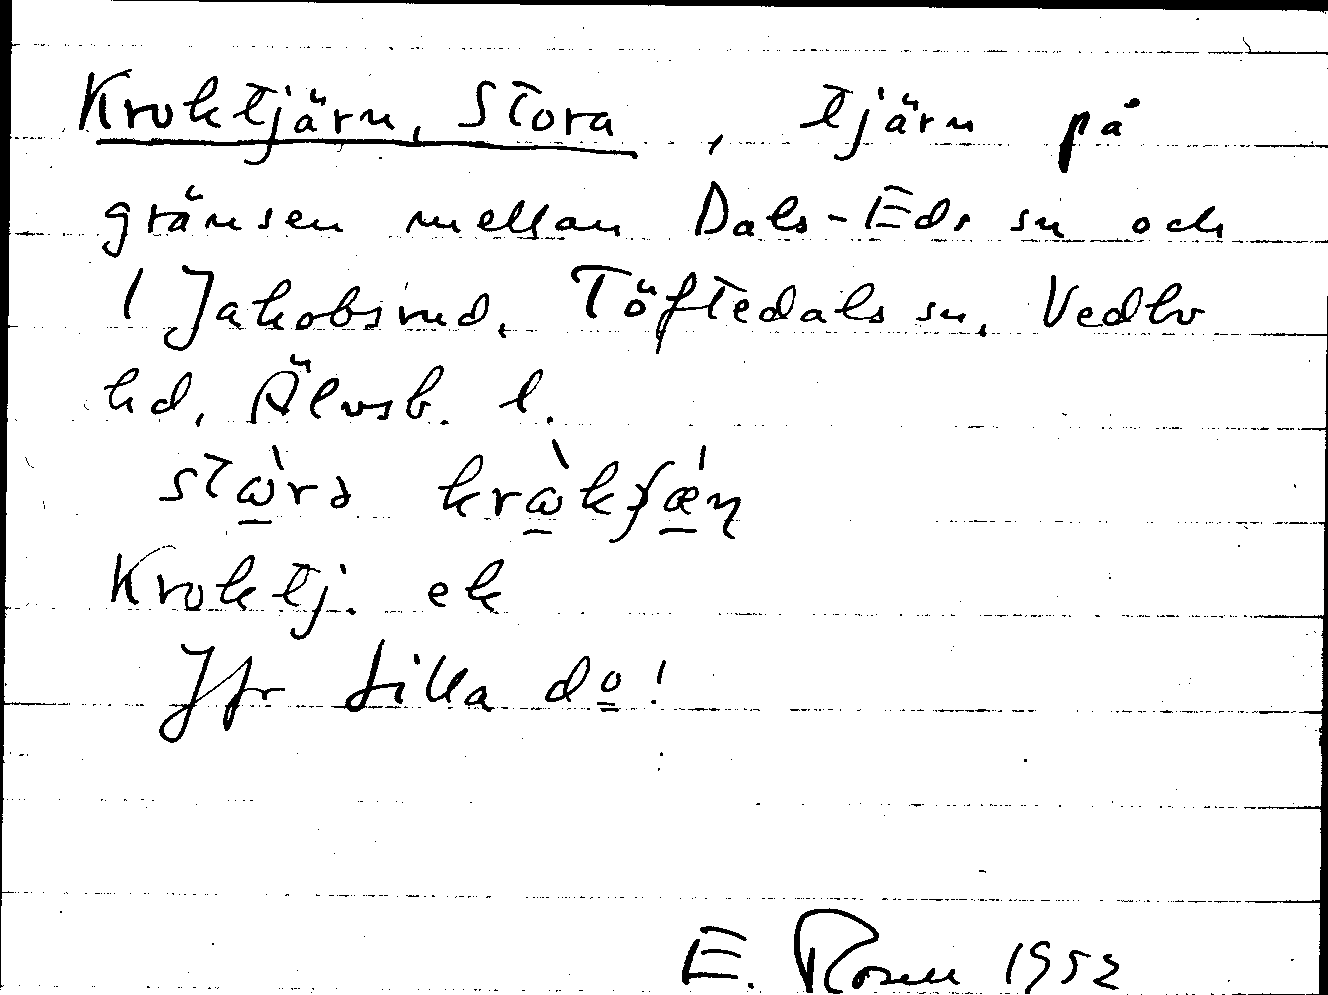 Kroktjärn, Stora, tjärn på
gränsen mellan Dals-Eds sn och
1 Jakobsrud, Töftedals sn, Vedbo
hd, Älvsb. l.
Kroktj. ek
Jfr Lilla do!
E. Rosen 1952